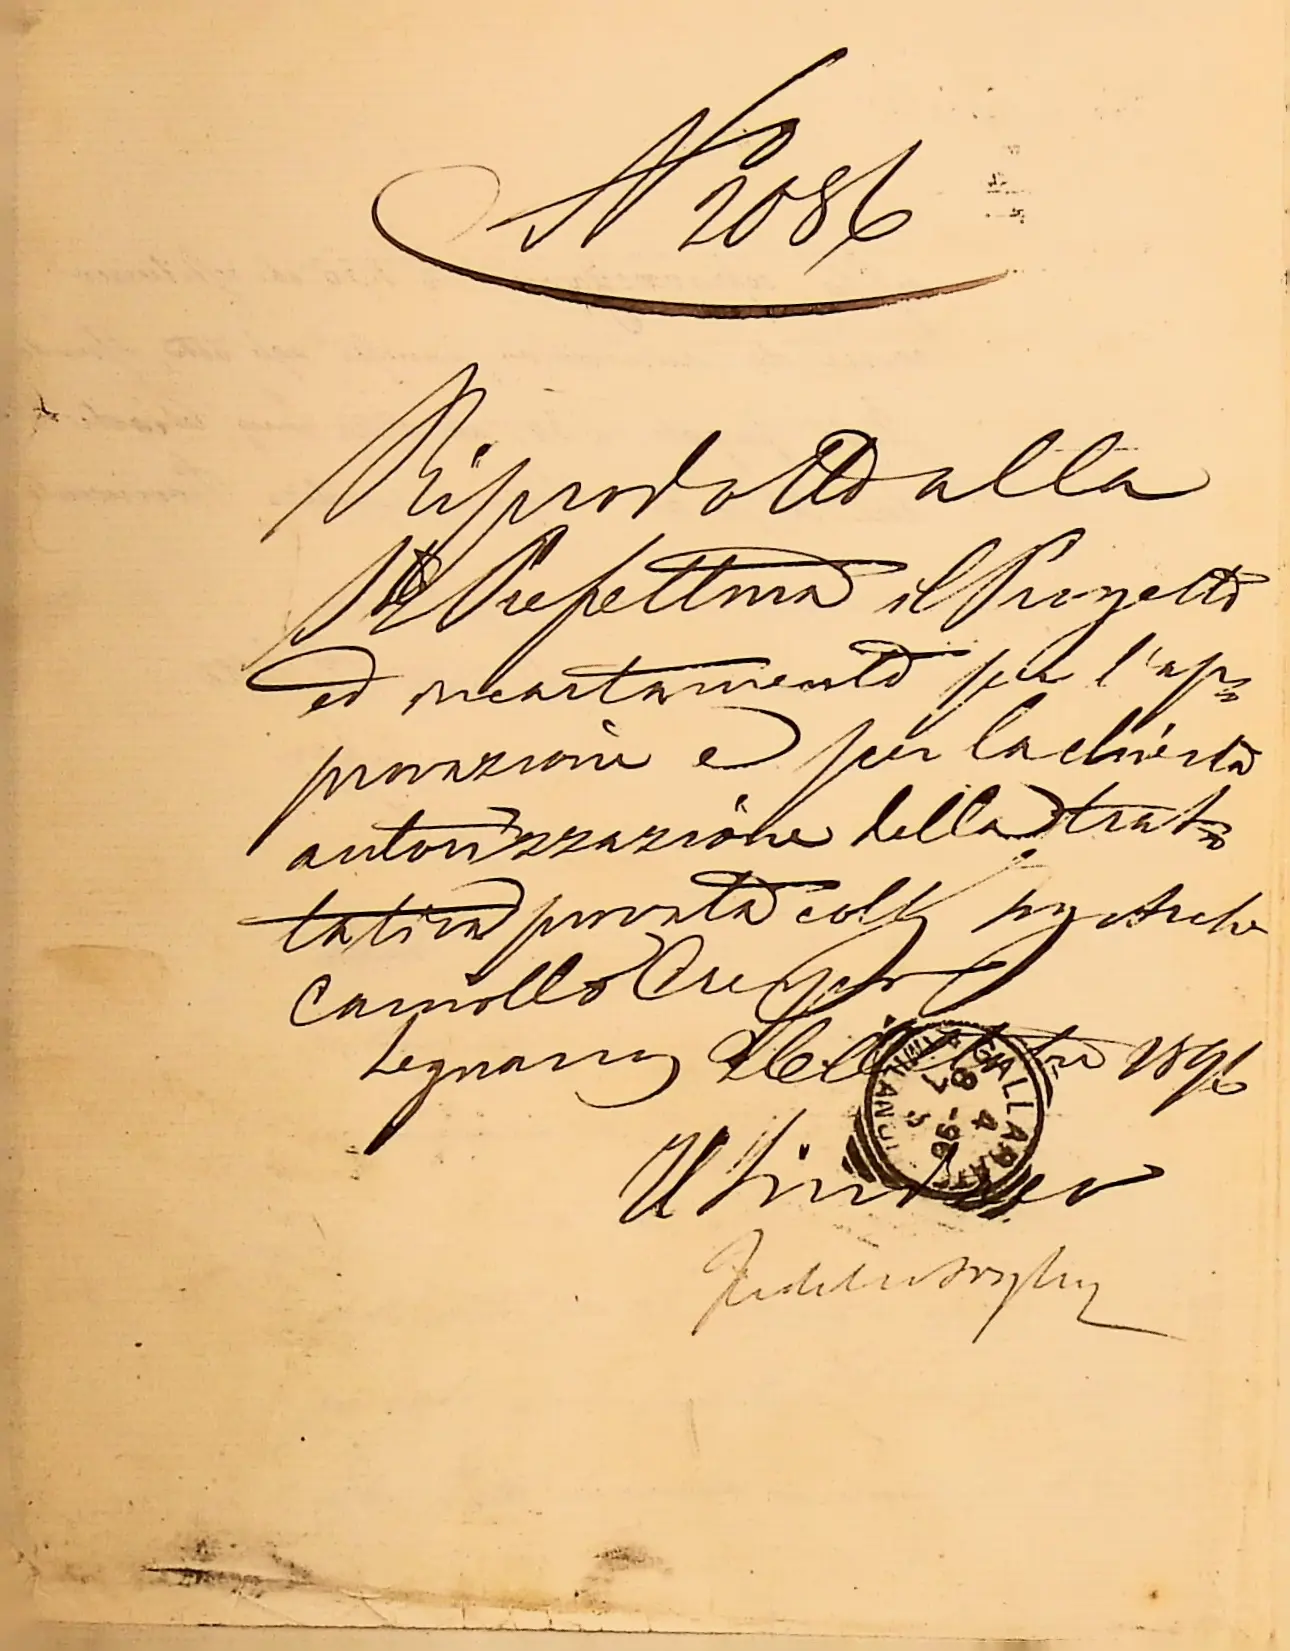 N° 2086
Riprodotto alla
R. Prefettura il Progetto
ed incartamento per l'ap=
provazione e per la chiesta
autorizzazione della trat=
tativa privata coll
Camillo Crespi
Legnano 1896
Il Sindaco
GALLARATE
MILANO